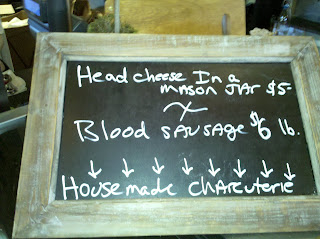 Head cheese In a
mason JAr $5-
Blood SAUSAGE $6 lb.
↓ ↓ ↓ ↓ ↓ ↓ ↓ ↓
Housemade chArcuterie